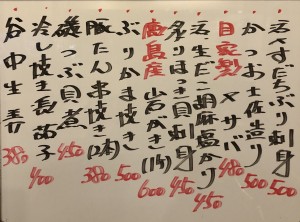 天然すだちぶり刺身 500
かつお土佐造り 500
自家製〆サバ 480
活〆生だこ胡麻塩かり 450
炙りほっき貝刺身 450
広島産 山戸がき(1ヶ) 600
ぶりかま焼き 500
豚たん串焼き(2本) 380
磯つぶ貝煮 450
冷し焼き長茄子 400
谷中生姜 380